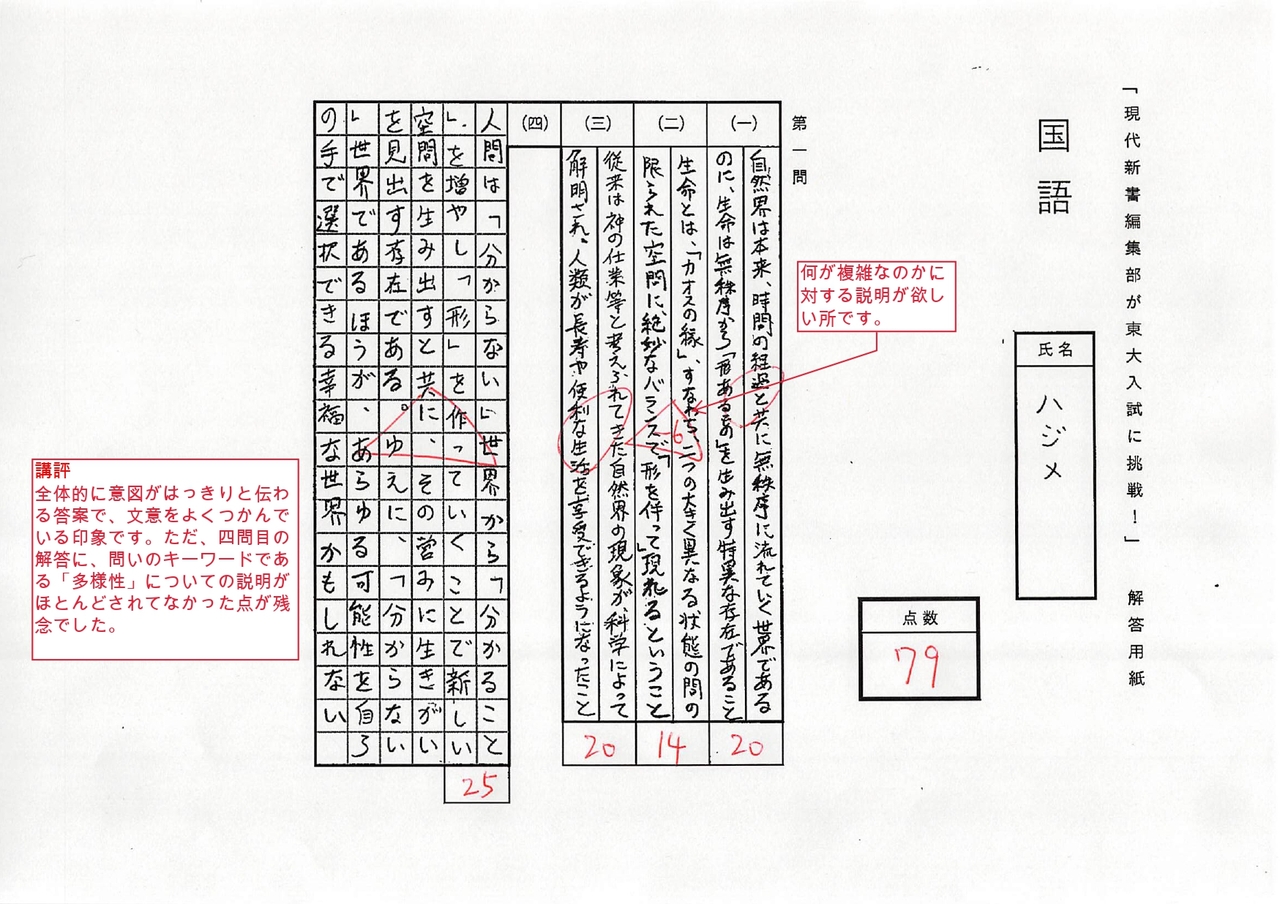 「現代新書編集部が東大入試に挑戦！」　解答用紙
国語
氏名
ハジメ
点数
79
第一問
(一)
自然界は本来、時間の経過と共に無秩序に流れていく世界である
のに、生命は無秩序から「形あるもの」を生み出す特異な存在であること
20
(二)
生命とは、「カオスの縁」、すなわち、二つの大きく異なる状態の間の
限られた空間に、絶妙なバランスで「形を伴って」現れるということ
-6
14
何が複雑なのかに
対する説明が欲し
い所です。
(三)
従来は神の仕業等と考えられてきた自然界の現象が、科学によって
解明され、人類が長寿や便利な生活を享受できるようになったこと
20
(四)
人間は「分からない」世界から「分かること
」を増やし「形」を作っていくことで新しい
空間を生み出すと共に、その営みに生きがい
を見出す存在である。ゆえに、「分からない
」世界であるほうが、あらゆる可能性を自ら
の手で選択できる幸福な世界かもしれない
25
講評
全体的に意図がはっきりと伝わ
る答案で、文意をよくつかんで
いる印象です。ただ、四問目の
解答に、問いのキーワードであ
る「多様性」についての説明が
ほとんどされてなかった点が残
念でした。